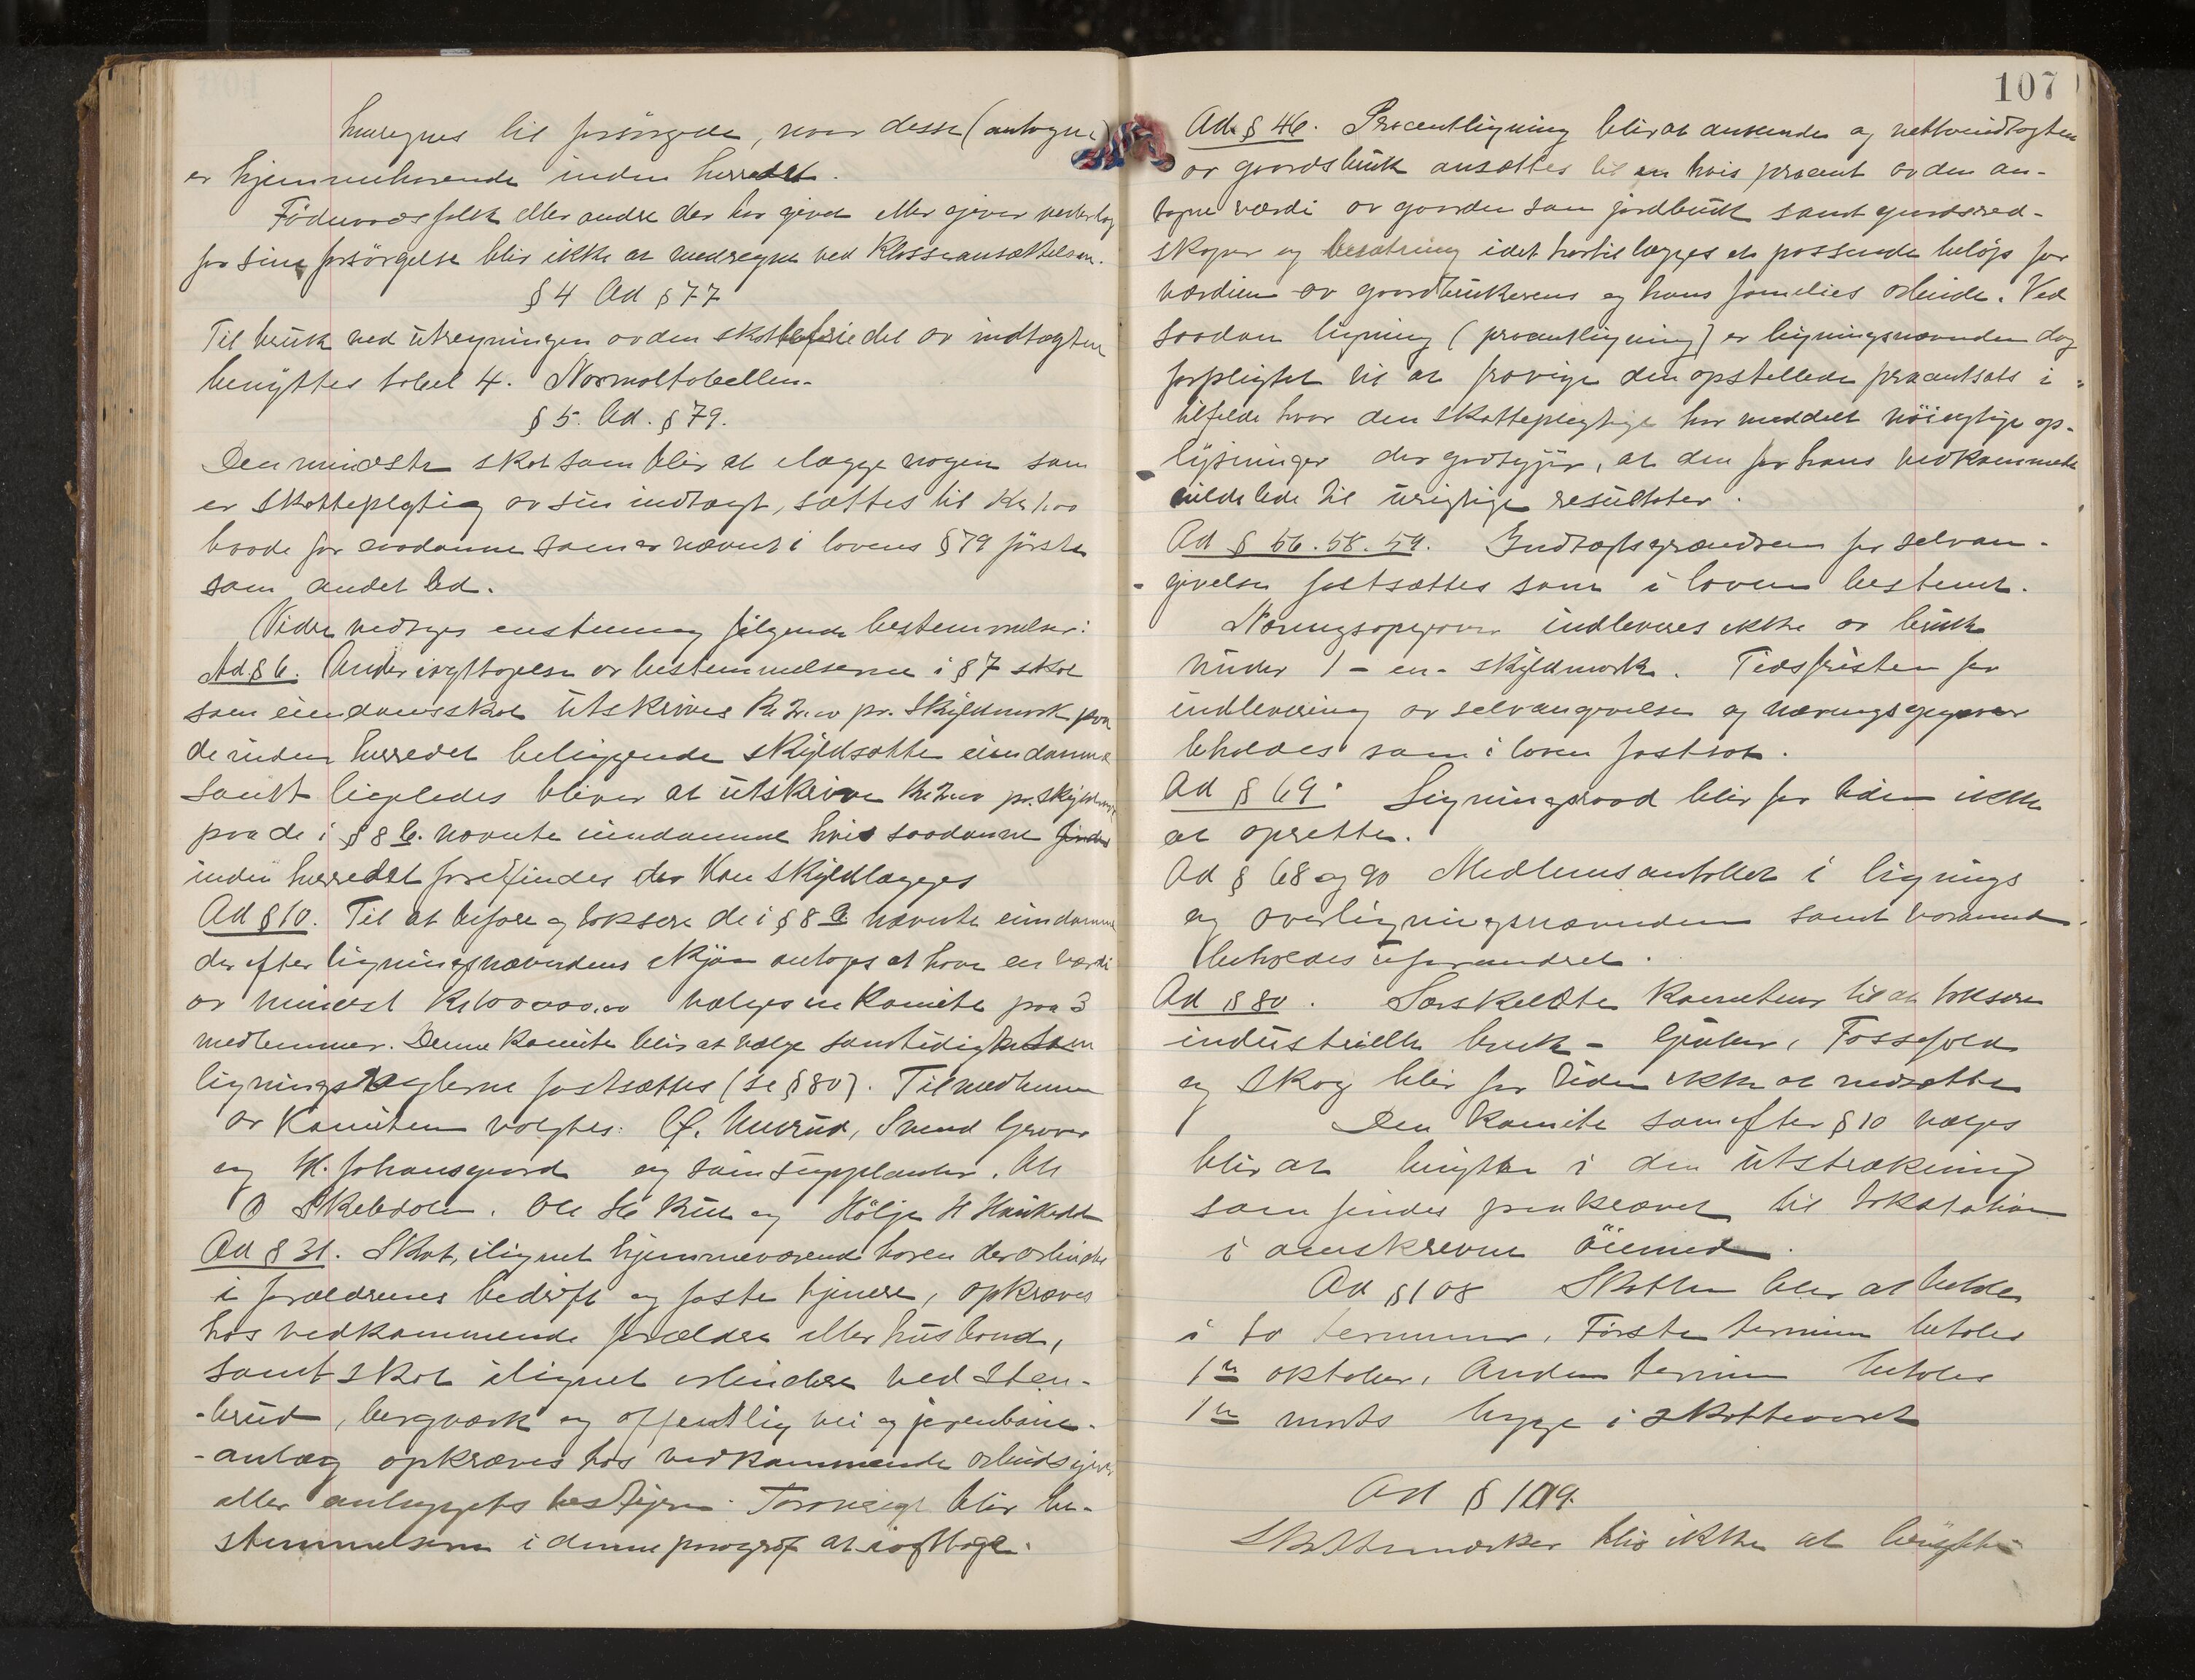 henregnes til forsörgede, naar desse (antagne)
er hjemmehørende inden herredet.
Föderaadsfolk eller andre der har givet eller giver vederlag
for sin forsörgelse blir ikke at medregne ved klasseansættelsen.
§ 4 Ad § 77
Til bruk ved utregningen av den skattefrie del av indtægten
benyttes tabel 4. Normaltabellen.
§ 5. Ad. § 79.
Den mindste skat som blir at ilægge nogen som
er skattepligtig av sin indtægt, sættes til Kr 1.00
baade for saadanne som er nævnt i lovens § 79 förste
som andet led.
Videre vedtages enstemmig fölgende bestemmelser:
Ad. § 6. Under iagttagelse av bestemmelserne i § 7 skal
som eiendomsskat utskrives Kr 2.00 pr. Skyldmark paa
de inden herredet beliggende skyldsatte eiendomme
samt ligeledes bliver at utskrive Kr 2.00 pr. skyldmark
paa de i § 8 b. nævnte eiendomme hvis saadanne findes
inden herredet forefindes der kan skyldlægges
Ad § 10. Til at befare og taksere de i § 8 a nævnte eiendomme
der efter ligningsnævndens skjön antages at have en værdi
av mindst Kr 100000.00 vælges en Komite paa 3
medlemmer. Denne Komite blir at vælge samtidig som
ligningsreglerne fastsættes (se § 80). Til medlemmer
av Komiteen valgtes: Svend Graver
og H. Johansgaard og som supplanter. Ole
O Skeledalen. Ole og Hölje H Haukedal
Ad § 31. Skat, ilignet hjemmeværende barn der arbeider
i forældrenes bedrift og faste tjenere, opkræves
hos vedkommende forældre eller husbond,
samt skat ilignet arbeidere ved Sten-
-brud, bergverk og offentlig vei og jernbane-
-anlæg opkræves hos vedkommende arbeidsgiver
eller anlæggets bestyrer. Forövrigt blir be-
stemmelserne i denne paragraf at iagttage.
107
Ad. § 46. Procentligning blir at anvende og nettoindtægten
av gaardsbruk ansættes til en hvis procent av den an-
tagne værdi av gaarden som jordbruk samt gaardsred-
skaper og besætning idet hertil lægges et passende belöp for
værdien av gaardbrukerens og hans families arbeide. Ved
saadan ligning (procentligning) er ligningsnævnden dog
forpligtet til at fravige den opstillede procentsats i
tilfelde hvor den skattepligtige har meddelt nöiagtige op-
lysninger der godtgjör, at den for hans vedkommende
vilde lede til urigtige resultater.
Ad § 56. 58. 59. Indtægtsgrændsen for selvan-
-givelse fastsættes som i loven bestemt.
Næringsopgaver indleveres ikke av bruk
under 1 - en - skyldmark. Tidsfristen for
indlevering av selvangivelse og næringsopgaver
beholdes som i loven fastsat.
Ad § 69. Ligningsraad blir for tiden ikke
at oprette.
Ad § 68 og 90 Medlemsantallet i lignings
og overligningsnævnden samt varamænd
beholdes uforandret.
Ad § 80. Særskildte komiteer til at taksere
industrielle bruk - Gruber, Fossefald
og Skog blir for tiden ikke at nedsætte
Den Komite som efter § 10 vælges
blir at benytte i den utstrækning
som findes paakrævet til takstation
i omskrevne öiemed.
Ad § 108 Skatten blir at betale
i to terminer, Förste termin betales
1ste oktober, Anden termin betales
1ste marts begge i skatteaaret
Ad § 109.
Skattemærker blir ikke at benytte